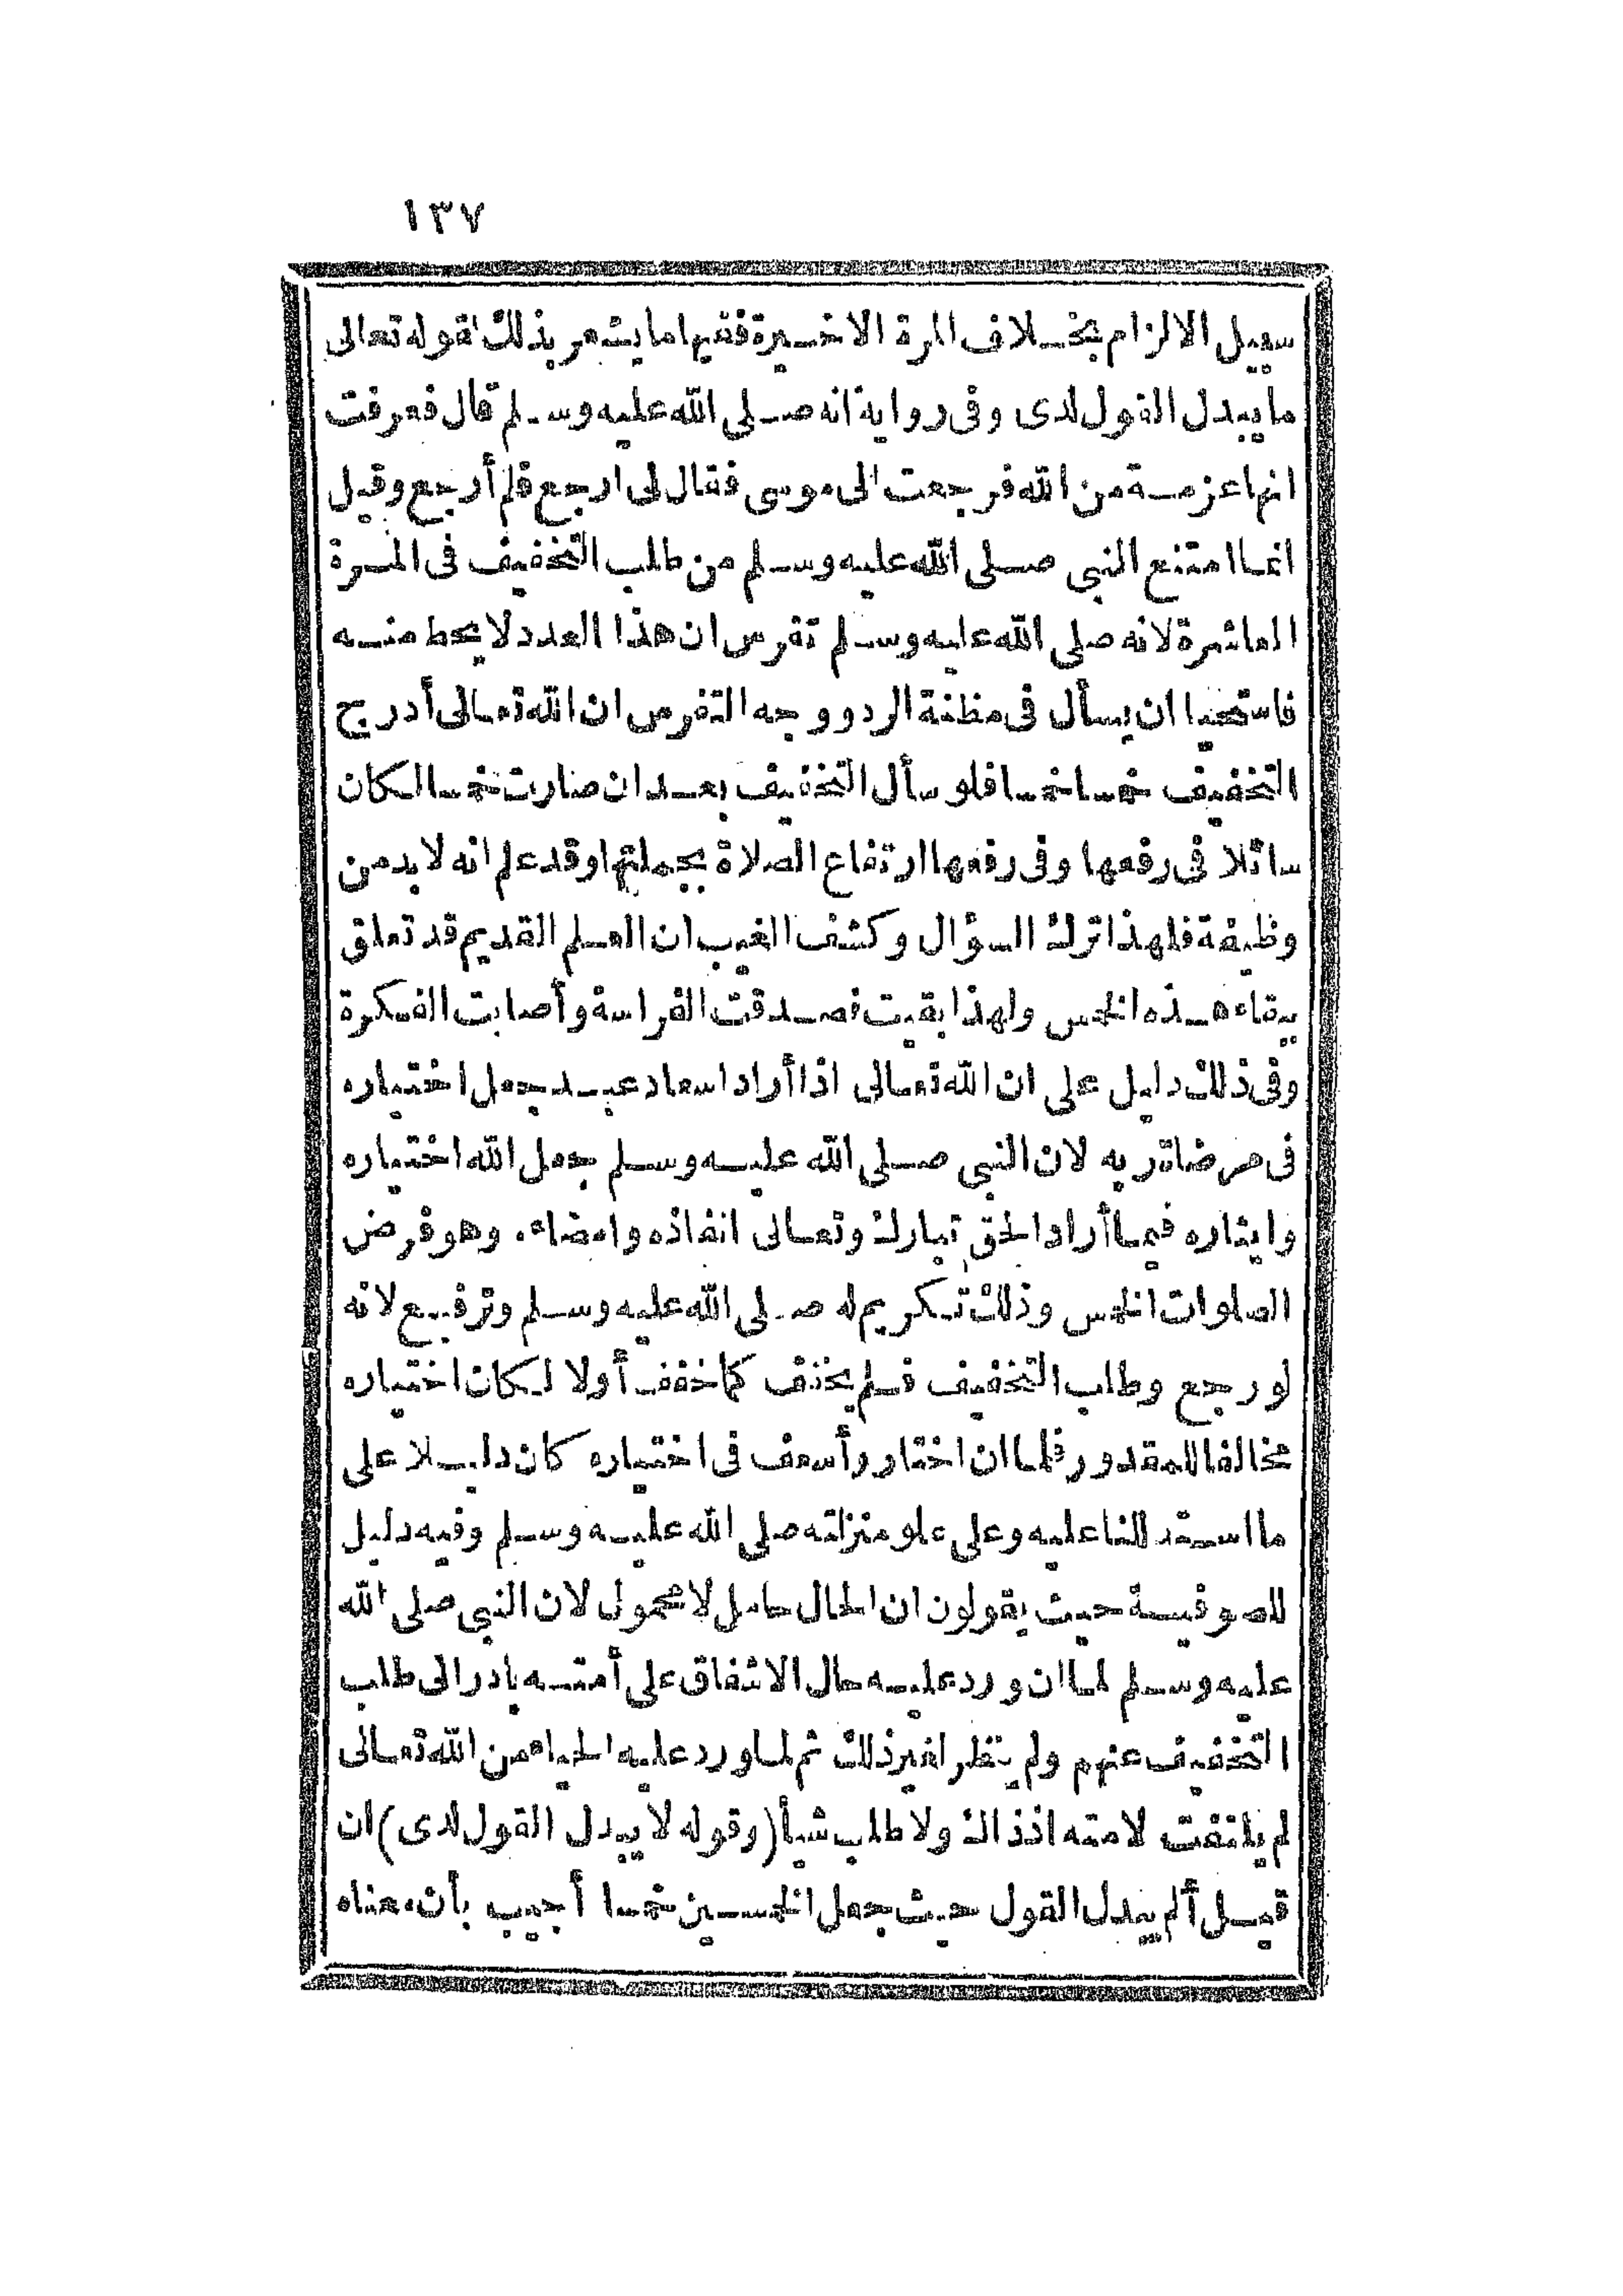 ١٣٧
سبيل الالزام بخلاف المرة الاخيرة ففيها ما يشعر بذلك لقوله تعالى
ما يبدل القول لدى وفى رواية انه صلى الله عليه وسلم قال فعرفت
انها عزمة من الله فرجعت الى موسى فقال لى ارجع فلم أرجع وقيل
انما امتنع النبى صلى الله عليه وسلم من طلب التخفيف فى المرة
العاشرة لانه صلى الله عليه وسلم تفرس ان هذا العدد لا يحط منه
فاستحيا ان يسأل فى مظنة الرد ووجه التفرس ان الله تعالى أدرج
التخفيف خمسا خمسا فلو سأل التخفيف بعد ان صارت خمسا لكان
سائلا فى رفعها وفى رفعها ارتفاع الصلاة بجملتها وقد علم انه لا بد من
وظيفة فلهذا ترك السؤال وكشف الغيب ان العلم القديم قد تعلق
ببقاء هذه الخمس ولهذا بقيت فصدقت الفراسة وأصابت الفكرة
وفى ذلك دليل على ان الله تعالى اذا أراد اسعاد عبد يجعل اختياره
فى مرضاة ربه لان النبى صلى الله عليه وسلم جعل الله اختياره
وايثاره فيما أراد الحق تبارك وتعالى انفاذه وامضاءه وهو فرض
الصلوات الخمس وذلك تكريم له صلى الله عليه وسلم وترفيع لانه
لو رجع وطلب التخفيف فلم يخفف كما خفف أولا لكان اختياره
مخالفا للمقدور فلما ان اختار وأسعف فى اختياره كان دليلا على
ما استدللنا عليه وعلى علو منزلته صلى الله عليه وسلم وفيه دليل
للصوفية حيث يقولون ان الحال حامل لا محمول لان النبى صلى الله
عليه وسلم لما ان ورد عليه حال الاشفاق على أمته بادر الى طلب
التخفيف عنهم ولم ينظر لغير ذلك ثم لما ورد عليه الحياء من الله تعالى
لم يلتفت لامته اذ ذاك ولا طلب شيأ (وقوله لا يبدل القول لدى) ان
قيل ألم يبدل القول حيث جعل الخمسين خمسا أجيب بأن معناه